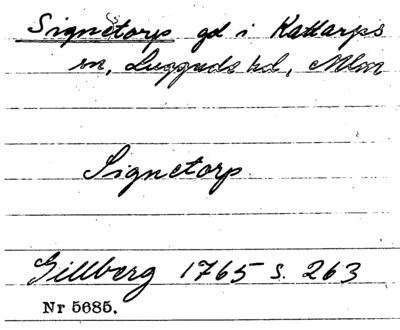 Signetorp gd i Kattarps
sn, Luggude hd, Mlm
Signetorp
Gillberg 1765 s. 263
Nr 5685.